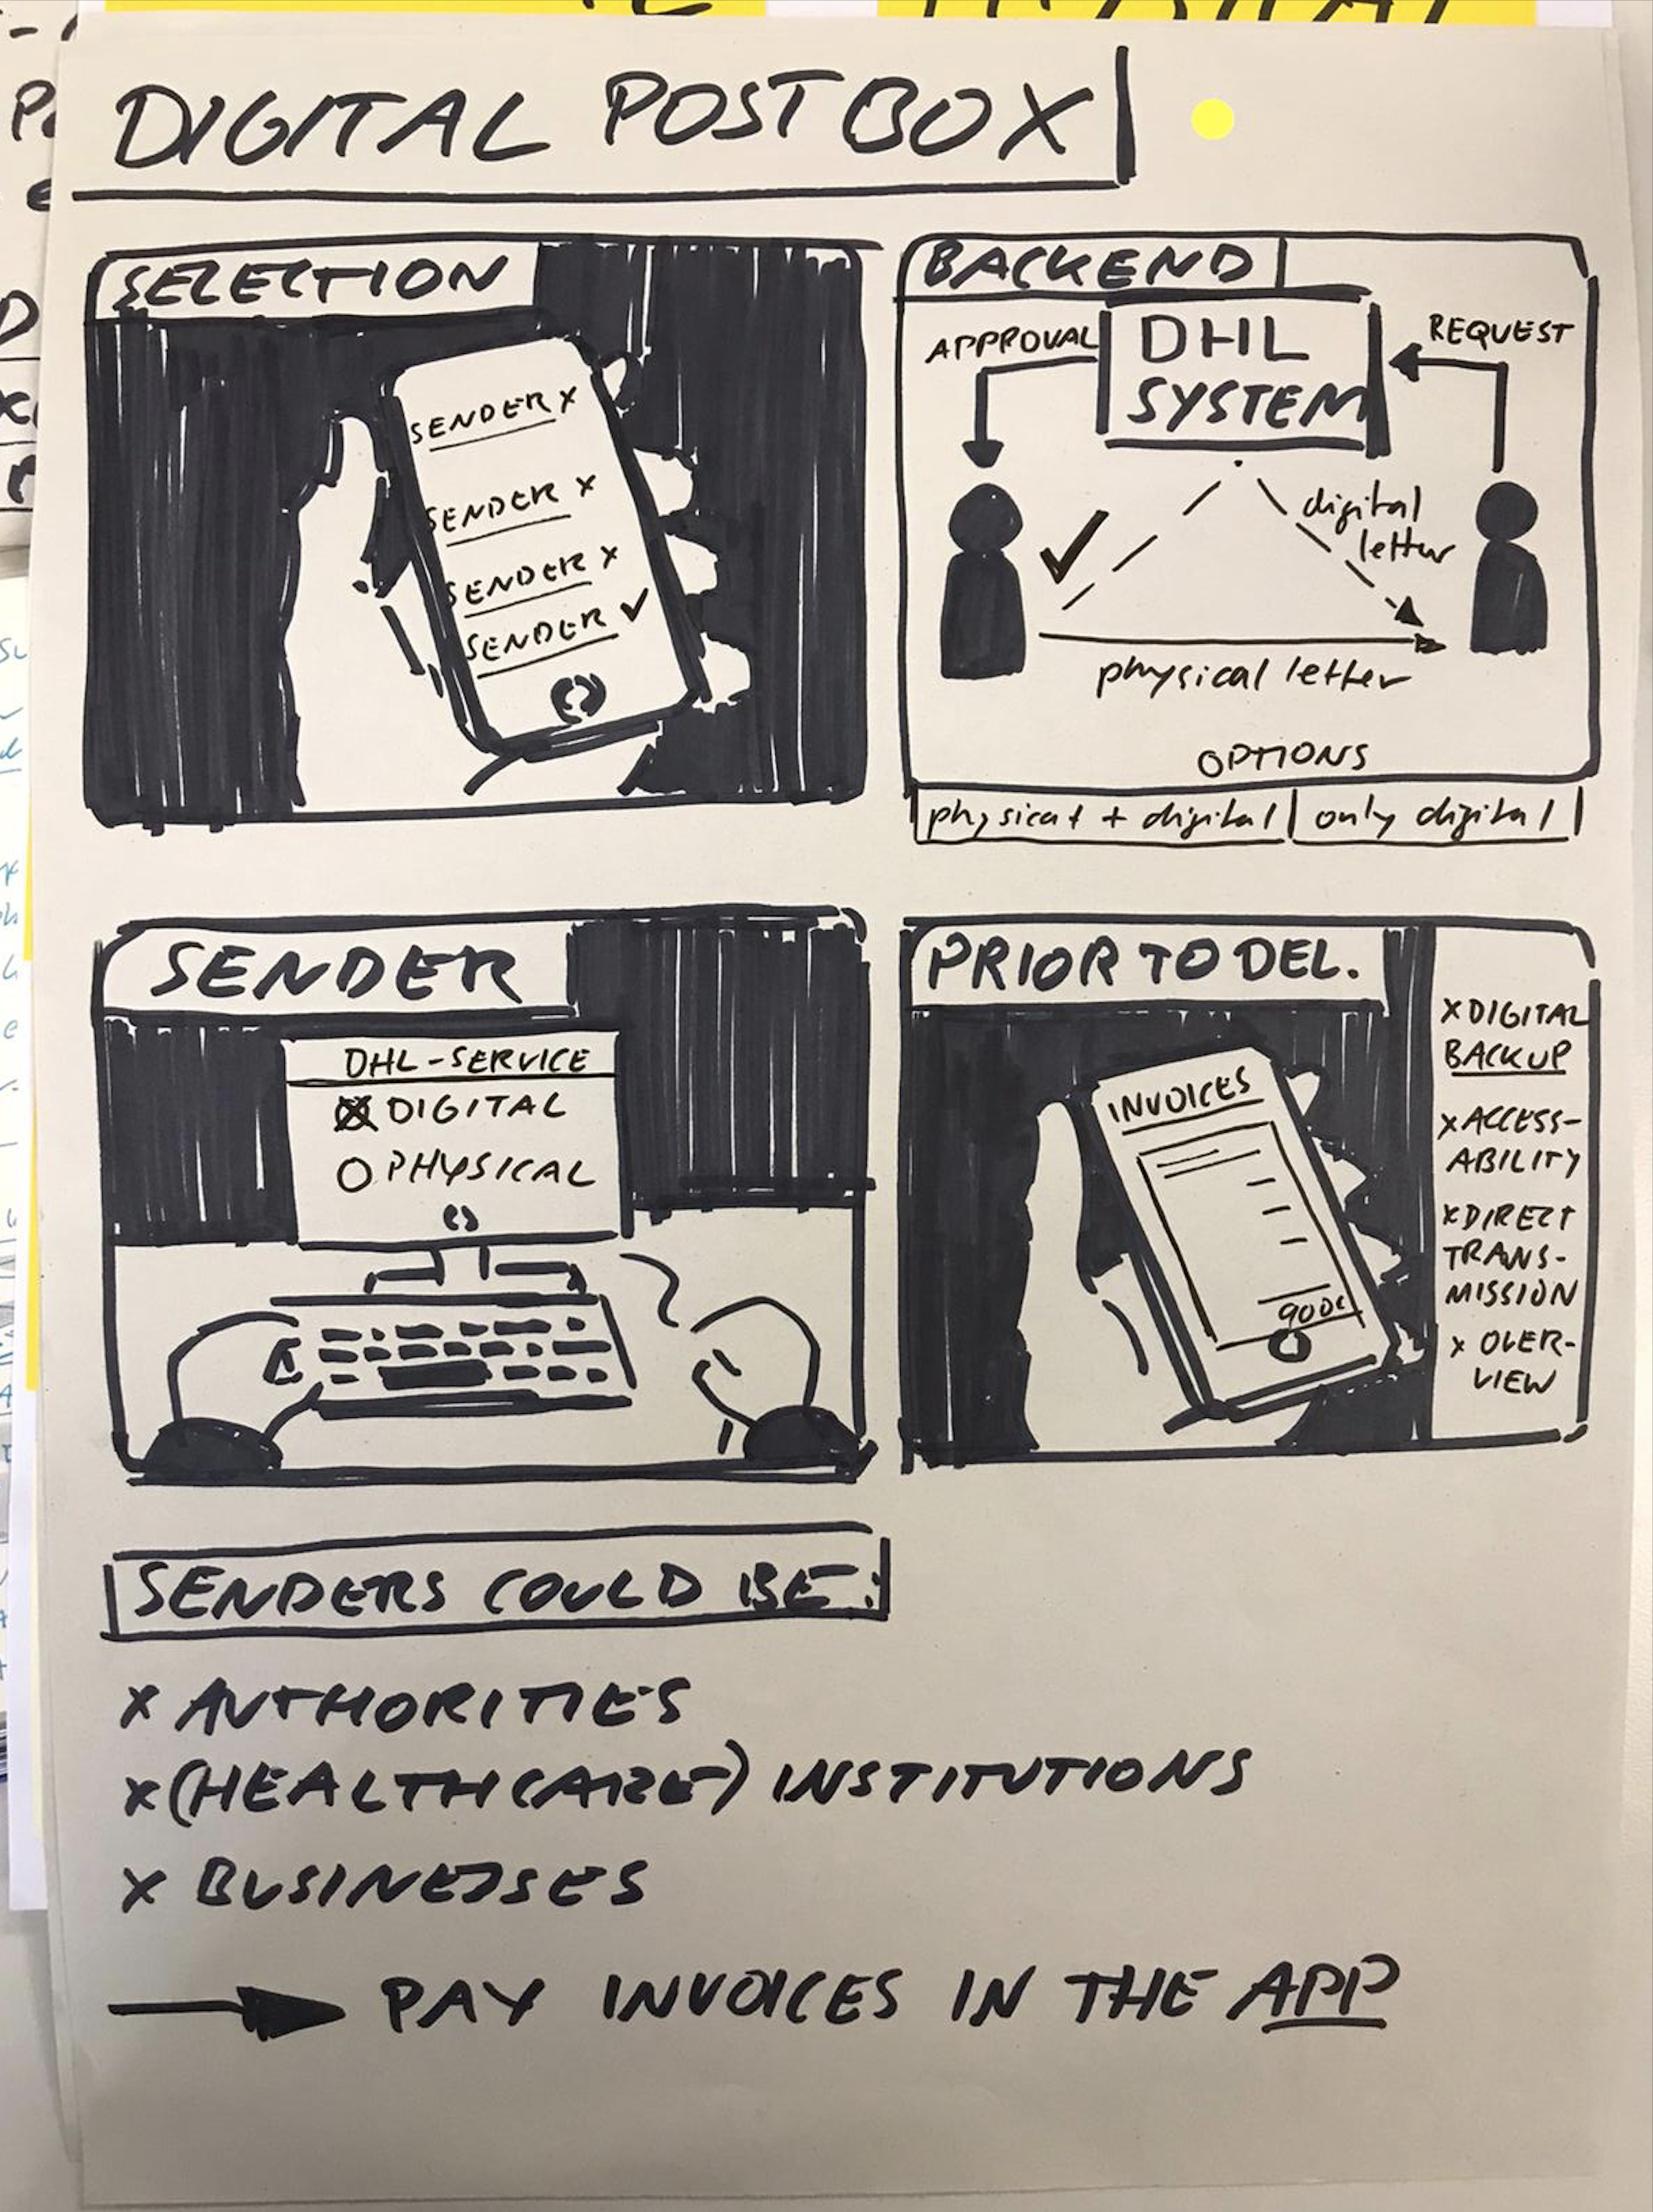 DIGITAL POSTBOX
SELECTION
SENDER x
SENDER x
SENDER x
SENDER ✓
BACKEND
APPROVAL
DHL
SYSTEM
REQUEST
digital
letter
physical letter
OPTIONS
physical + digital
only digital
SENDER
DHL-SERVICE
DIGITAL
PHYSICAL
PRIOR TO DEL.
INVOICES
900€
x DIGITAL
BACKUP
x ACCESS-
ABILITY
x DIRECT
TRANS-
MISSION
x OVER-
VIEW
SENDERS COULD BE:
x AUTHORITIES
x (HEALTHCARE) INSTITUTIONS
x BUSINESSES
→ PAY INVOICES IN THE APP